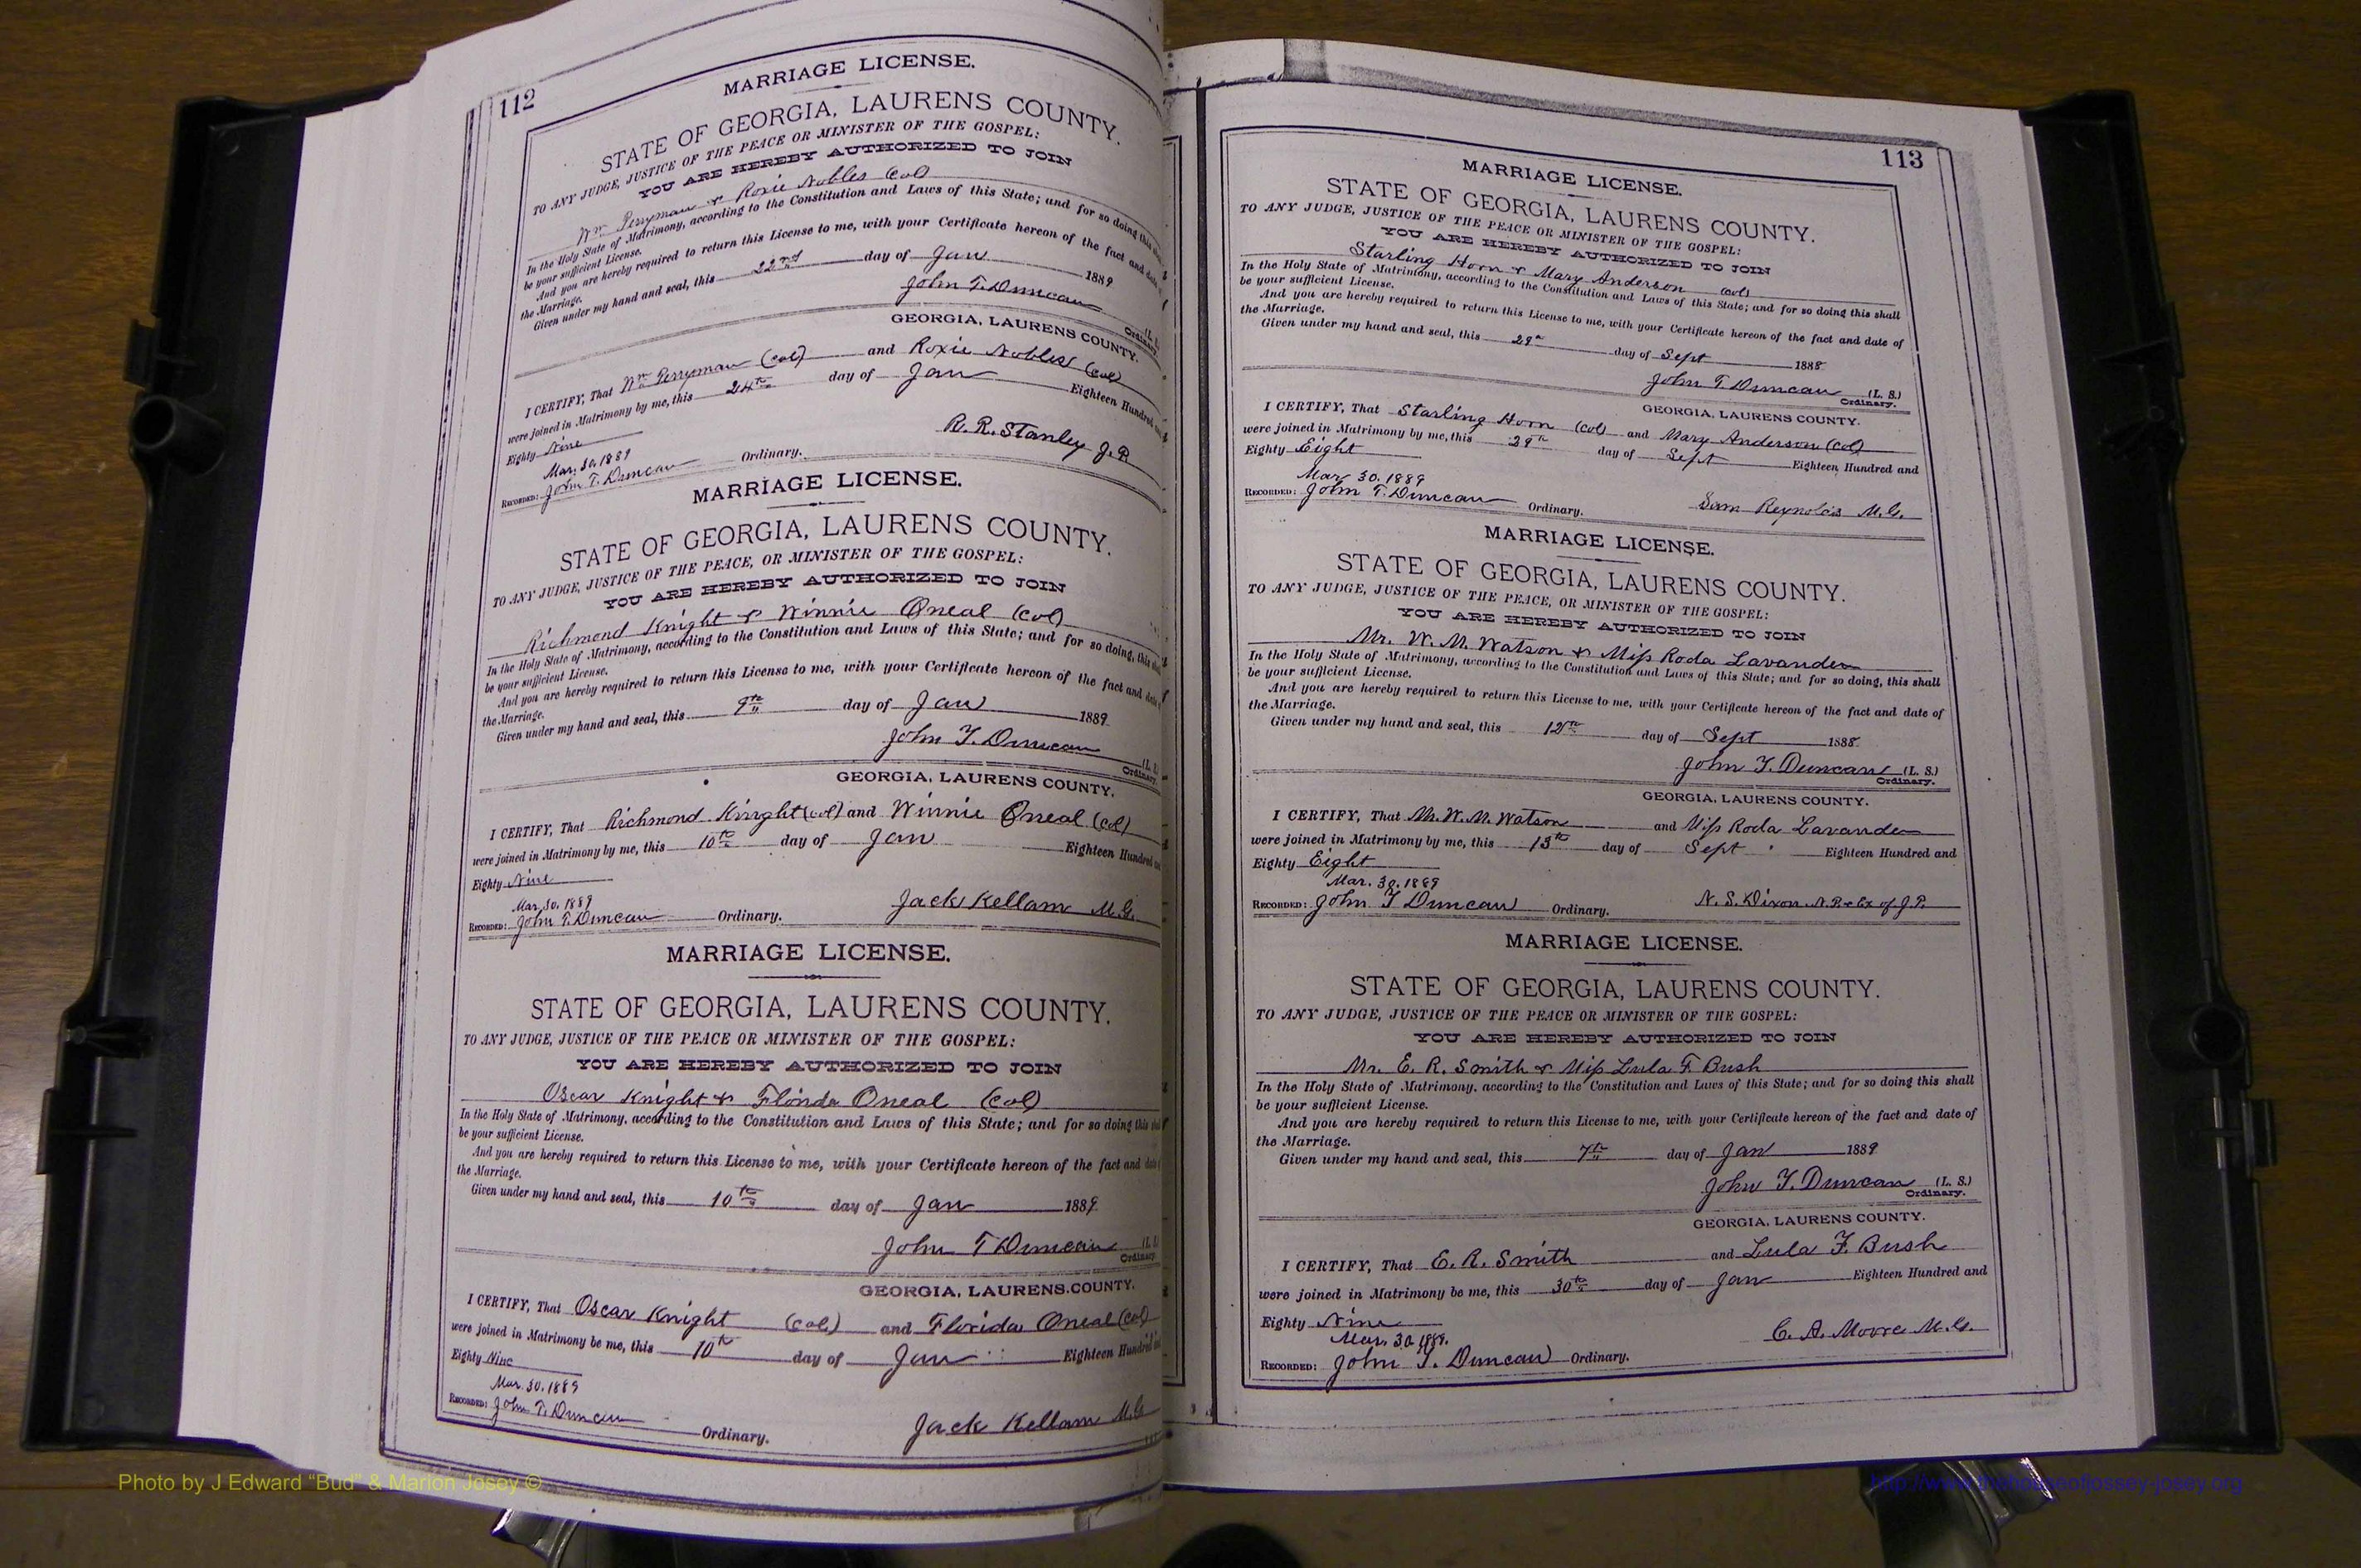 112
MARRIAGE LICENSE.
STATE OF GEORGIA, LAURENS COUNTY.
TO ANY JUDGE, JUSTICE OF THE PEACE OR MINISTER OF THE GOSPEL:
YOU ARE HEREBY AUTHORIZED TO JOIN
Wm Perryman & Roxie Nobles (Col)
In the Holy State of Matrimony, according to the Constitution and Laws of this State; and for so doing this
be your sufficient License.
And you are hereby required to return this License to me, with your Certificate hereon of the fact and date
the Marriage.
Given under my hand and seal, this 22nd day of Jan 1889
John T. Duncan (L.
Ordinary.
GEORGIA, LAURENS COUNTY.
I CERTIFY, That Wm Perryman (Col) and Roxie Nobles (Col)
were joined in Matrimony by me, this 24th day of Jan Eighteen Hundred
Eighty Nine
Mar. 30. 1889
R. R. Stanley J. P.
RECORDED: John T. Duncan Ordinary.
MARRIAGE LICENSE.
STATE OF GEORGIA, LAURENS COUNTY.
TO ANY JUDGE, JUSTICE OF THE PEACE, OR MINISTER OF THE GOSPEL:
YOU ARE HEREBY AUTHORIZED TO JOIN
Richmond Knight & Winnie Oneal (Col)
In the Holy State of Matrimony, according to the Constitution and Laws of this State; and for so doing, this
be your sufficient License.
And you are hereby required to return this License to me, with your Certificate hereon of the fact and date
the Marriage.
Given under my hand and seal, this 9th day of Jan 1889
John T. Duncan (L.
Ordinary.
GEORGIA, LAURENS COUNTY.
I CERTIFY, That Richmond Knight (Col) and Winnie Oneal (Col)
were joined in Matrimony by me, this 10th day of Jan Eighteen Hundred
Eighty Nine
Mar. 30. 1889
RECORDED: John T. Duncan Ordinary. Jack Kellam M. G.
MARRIAGE LICENSE.
STATE OF GEORGIA, LAURENS COUNTY.
TO ANY JUDGE, JUSTICE OF THE PEACE OR MINISTER OF THE GOSPEL:
YOU ARE HEREBY AUTHORIZED TO JOIN
Oscar Knight & Florida Oneal (Col)
In the Holy State of Matrimony, according to the Constitution and Laws of this State; and for so doing
be your sufficient License.
And you are hereby required to return this License to me, with your Certificate hereon of the fact and
the Marriage.
Given under my hand and seal, this 10th day of Jan 1889
John T Duncan (L.
Ordinary
GEORGIA, LAURENS COUNTY.
I CERTIFY, That Oscar Knight (Col) and Florida Oneal (Col)
were joined in Matrimony be me, this 10th day of Jan Eighteen Hundred
Eighty Nine
Mar. 30. 1889
RECORDED: John T. Duncan Ordinary. Jack Kellam M. G.
113
MARRIAGE LICENSE.
STATE OF GEORGIA, LAURENS COUNTY.
TO ANY JUDGE, JUSTICE OF THE PEACE OR MINISTER OF THE GOSPEL:
YOU ARE HEREBY AUTHORIZED TO JOIN
Starling Horn & Mary Anderson (Col)
In the Holy State of Matrimony, according to the Constitution and Laws of this State; and for so doing this shall
be your sufficient License.
And you are hereby required to return this License to me, with your Certificate hereon of the fact and date of
the Marriage.
Given under my hand and seal, this 29th day of Sept 1888
John T. Duncan (L. S.)
Ordinary.
GEORGIA, LAURENS COUNTY.
I CERTIFY, That Starling Horn (Col) and Mary Anderson (Col)
were joined in Matrimony by me, this 29th day of Sept Eighteen Hundred and
Eighty Eight
Mar 30. 1889
RECORDED: John T. Duncan Ordinary. Sam Reynolds M. G.
MARRIAGE LICENSE.
STATE OF GEORGIA, LAURENS COUNTY.
TO ANY JUDGE, JUSTICE OF THE PEACE, OR MINISTER OF THE GOSPEL:
YOU ARE HEREBY AUTHORIZED TO JOIN
Mr. W. M. Watson & Miss Roda Lavander
In the Holy State of Matrimony, according to the Constitution and Laws of this State; and for so doing, this shall
be your sufficient License.
And you are hereby required to return this License to me, with your Certificate hereon of the fact and date of
the Marriage.
Given under my hand and seal, this 12th day of Sept 1888
John T. Duncan (L. S.)
Ordinary.
GEORGIA, LAURENS COUNTY.
I CERTIFY, That Mr. W. M. Watson and Miss Roda Lavander
were joined in Matrimony by me, this 13th day of Sept Eighteen Hundred and
Eighty Eight
Mar. 30. 1889
RECORDED: John T Duncan Ordinary. N. S. Dixon N. P. & Ex of J. P.
MARRIAGE LICENSE.
STATE OF GEORGIA, LAURENS COUNTY.
TO ANY JUDGE, JUSTICE OF THE PEACE OR MINISTER OF THE GOSPEL:
YOU ARE HEREBY AUTHORIZED TO JOIN
Mr. E. R. Smith & Miss Lula F. Bush
In the Holy State of Matrimony, according to the Constitution and Laws of this State; and for so doing this shall
be your sufficient License.
And you are hereby required to return this License to me, with your Certificate hereon of the fact and date of
the Marriage.
Given under my hand and seal, this 7th day of Jan 1889
John T. Duncan (L. S.)
Ordinary.
GEORGIA, LAURENS COUNTY.
I CERTIFY, That E. R. Smith and Lula F. Bush
were joined in Matrimony be me, this 30th day of Jan Eighteen Hundred and
Eighty Nine
Mar. 30. 1889.
C. A. Moore M. G.
RECORDED: John T. Duncan Ordinary.
Photo by J Edward “Bud” & Marion Josey ©
http://www.thehouseofjossey-josey.org